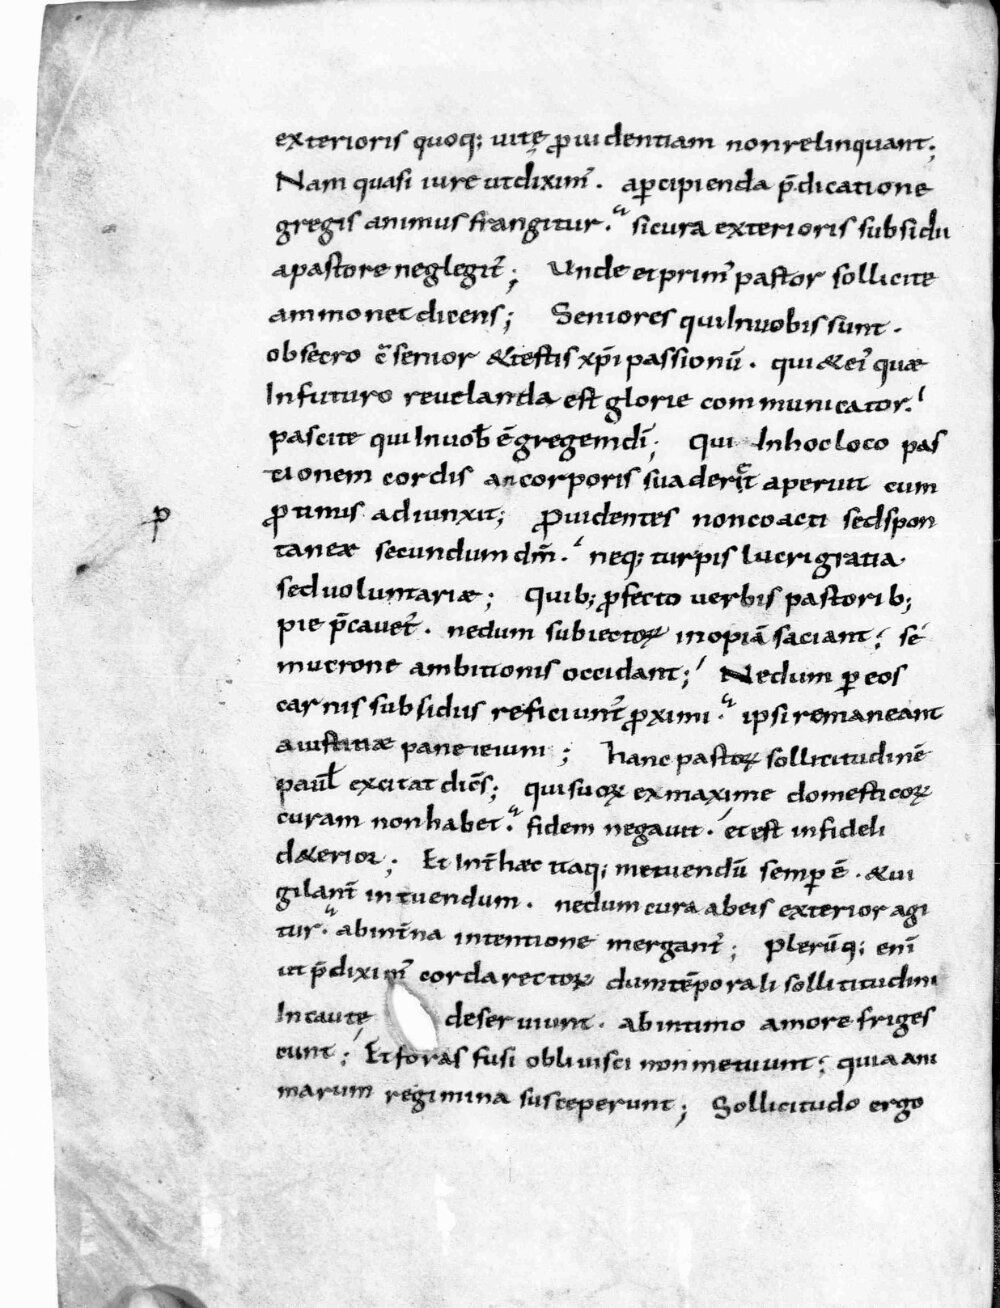 exterioris quoq; uitę ꝓuidentiam nonrelinquant;
Nam quasi iure utdiximꝰ. aꝑcipienda p̄dicatione
gregis animus frangitur. sicura exterioris subsidii
apastore neglegit᷑; Unde etprimꝰ pastor sollicite
ammonet dicens; Seniores quiInuobis sunt.
obsecro c̄senior &testis xp̄i passionū. qui&eiꝰ quae
Infuturo reuelanda est glorie communicator.
pascite quiInuob̄ ē gregemdī; Qui Inhocloco pas
tionem cordis an corporis suaderet aperuit cum
ꝓtinus adiunxit; Ꝓuidentes noncoacti sedspon
taneae secundum dm̄. neq; turpis lucri gratia.
seduoluntariae; Quib; ꝓfecto uerbis pastorib;
pie p̄cauet᷑. nedum subiectoꝝ inopiā saciant; sé
mucrone ambitionis occidant; Nedum ꝑeos
carnis subsidiis reficiunt᷑ ꝓximi. ipsi remaneant
aiustitiae pane ieiuni; hanc pastoꝝ sollicitudinē
paul̄ excitat dicēs; quisuoꝝ exmaxime domesticoꝝ
curam nonhabet. fidem negauit. etest infideli
d&erior; Et Int̄haec itaq; metuendū semꝑ ē. &ui
gilant̄ intuendum. nedumcura abeis exterior agi
tur. abint̄na intentione mergant᷑; Plerūq; enī
ut p̄diximꝰ cordarectoꝝ dumtēporali sollicitudini
Incautę deseruiunt. abintimo amore friges
cunt; Et foras fusi obliuisci nonmetuunt; quiaani
marum regimina susceperunt; Sollicitudo ergo
ꝓ